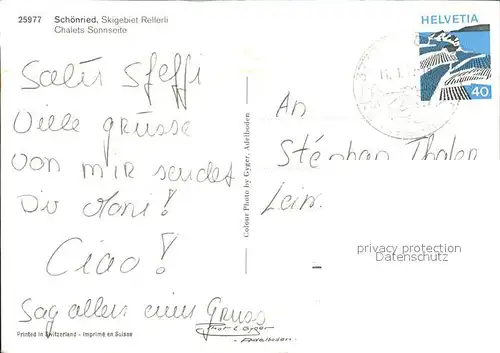 25977 Schönried, Skigebiet Rellerli
Chalets Sonnseite
HELVETIA
40
Salüs Steffi
Viele grüsse
von mir sendet
Dir Moni!
Ciao!
Sag allen einen Gruss
An
Stephan Thaler
Colour Photo by Gyger, Adelboden
privacy protection
Datenschutz
Printed in Switzerland - Imprimé en Suisse
Gyger
- Adelboden -